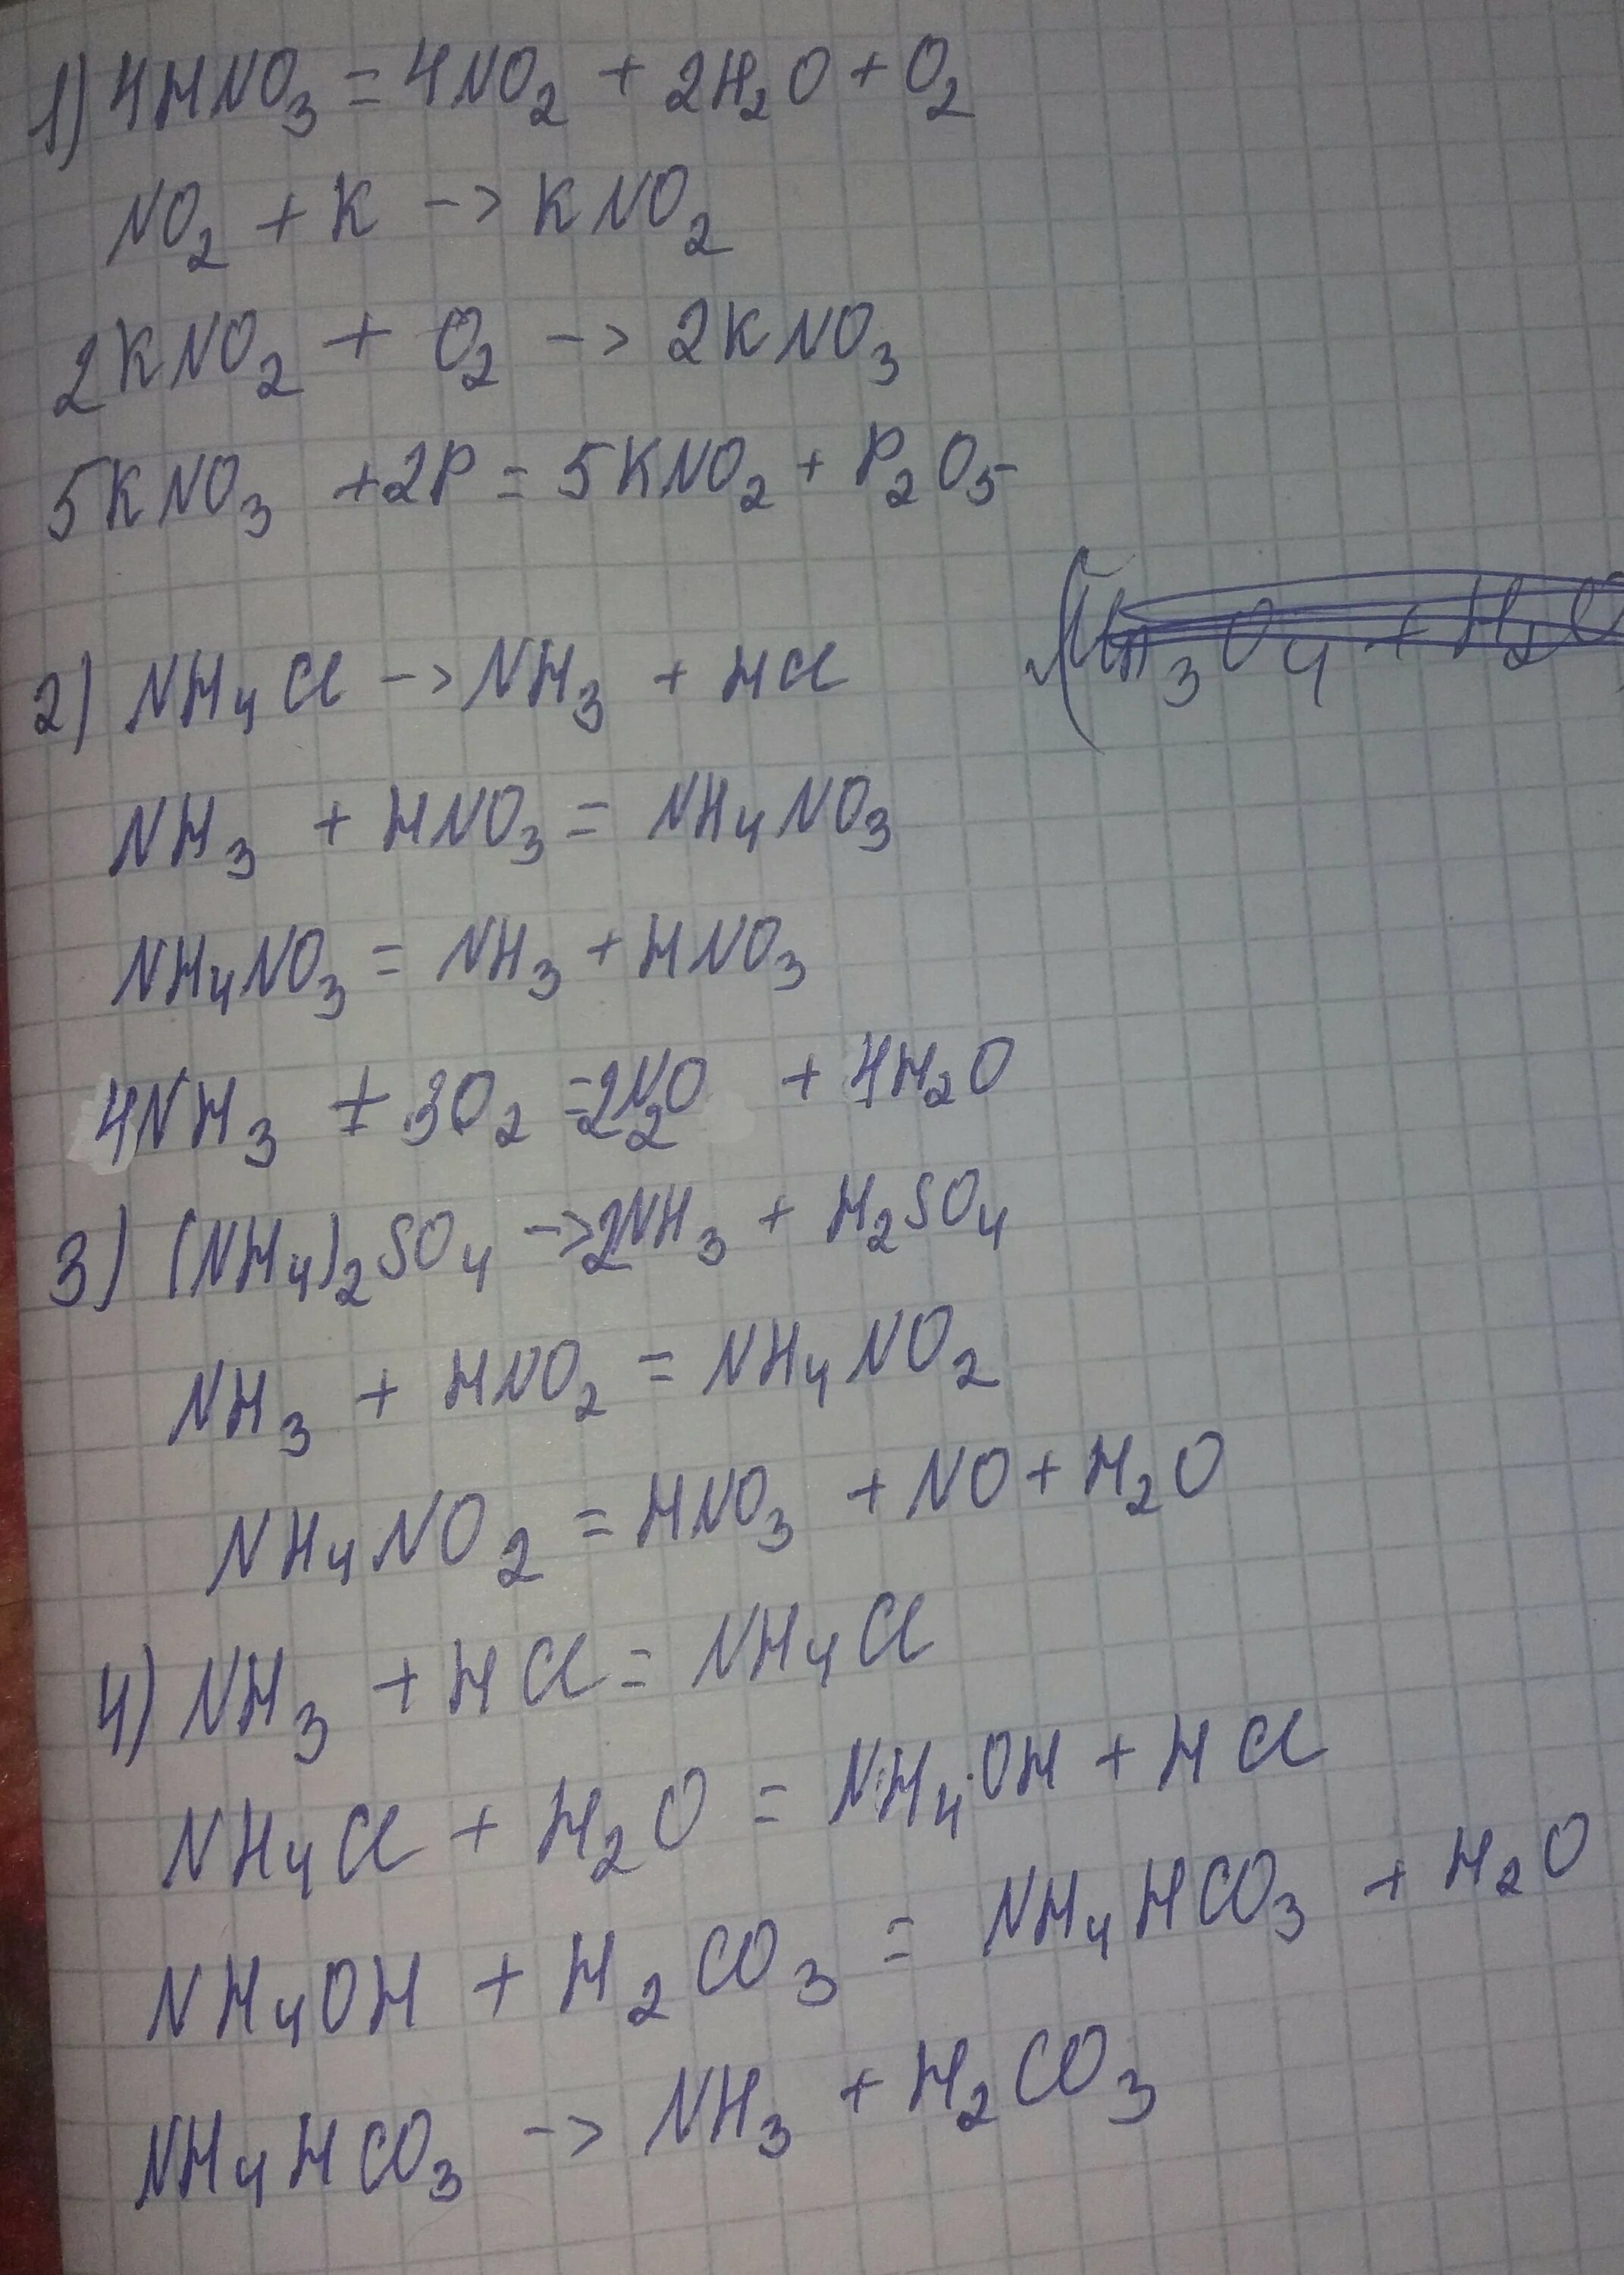 1) 4HNO₃ = 4NO₂ + 2H₂O + O₂
NO₂ + K -> KNO₂
2KNO₂ + O₂ -> 2KNO₃
5KNO₃ + 2P = 5KNO₂ + P₂O₅
Mn₃O₄ + H₂O
2) NH₄Cl -> NH₃ + HCl
NH₃ + HNO₃ = NH₄NO₃
NH₄NO₃ = NH₃ + HNO₃
4NH₃ + 3O₂ = 2N₂O + 4H₂O
3) (NH₄)₂SO₄ -> 2NH₃ + H₂SO₄
NH₃ + HNO₂ = NH₄NO₂
NH₄NO₂ = HNO₃ + NO + H₂O
4) NH₃ + HCl = NH₄Cl
NH₄Cl + H₂O = NH₄OH + HCl
NH₄OH + H₂CO₃ = NH₄HCO₃ + H₂O
NH₄HCO₃ -> NH₃ + H₂CO₃